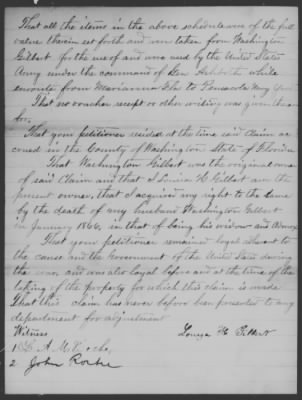 That all the items in the above schedule were of the full
value therein set forth and were taken from Washington
Gilbert for the use of and was used by the United States
Army under the command of Gen Asboth while
enroute from Marianna Fla to Pensacola Navy Yard
That no voucher receipt or other writing was given there
for.
That your petitioner resided at the time said Claim ac
crued in the County of Washington State of Florida
That Washington Gilbert was the original owner
of said Claim and that I Louisa H Gilbert am the
present owner, that I acquired my right to the same
by the death of my husband Washington Gilbert
in January 1866, in that of being his widow and
That your petitioner remained loyal adherent to
the cause and the Government of the United States during
the war, and was also loyal before and at the time of the
taking of the property for which this claim is made
That this claim has never before been presented to any
department for adjustment
Witness Louisa H Gilbert
1 A. M.
2 John Roche